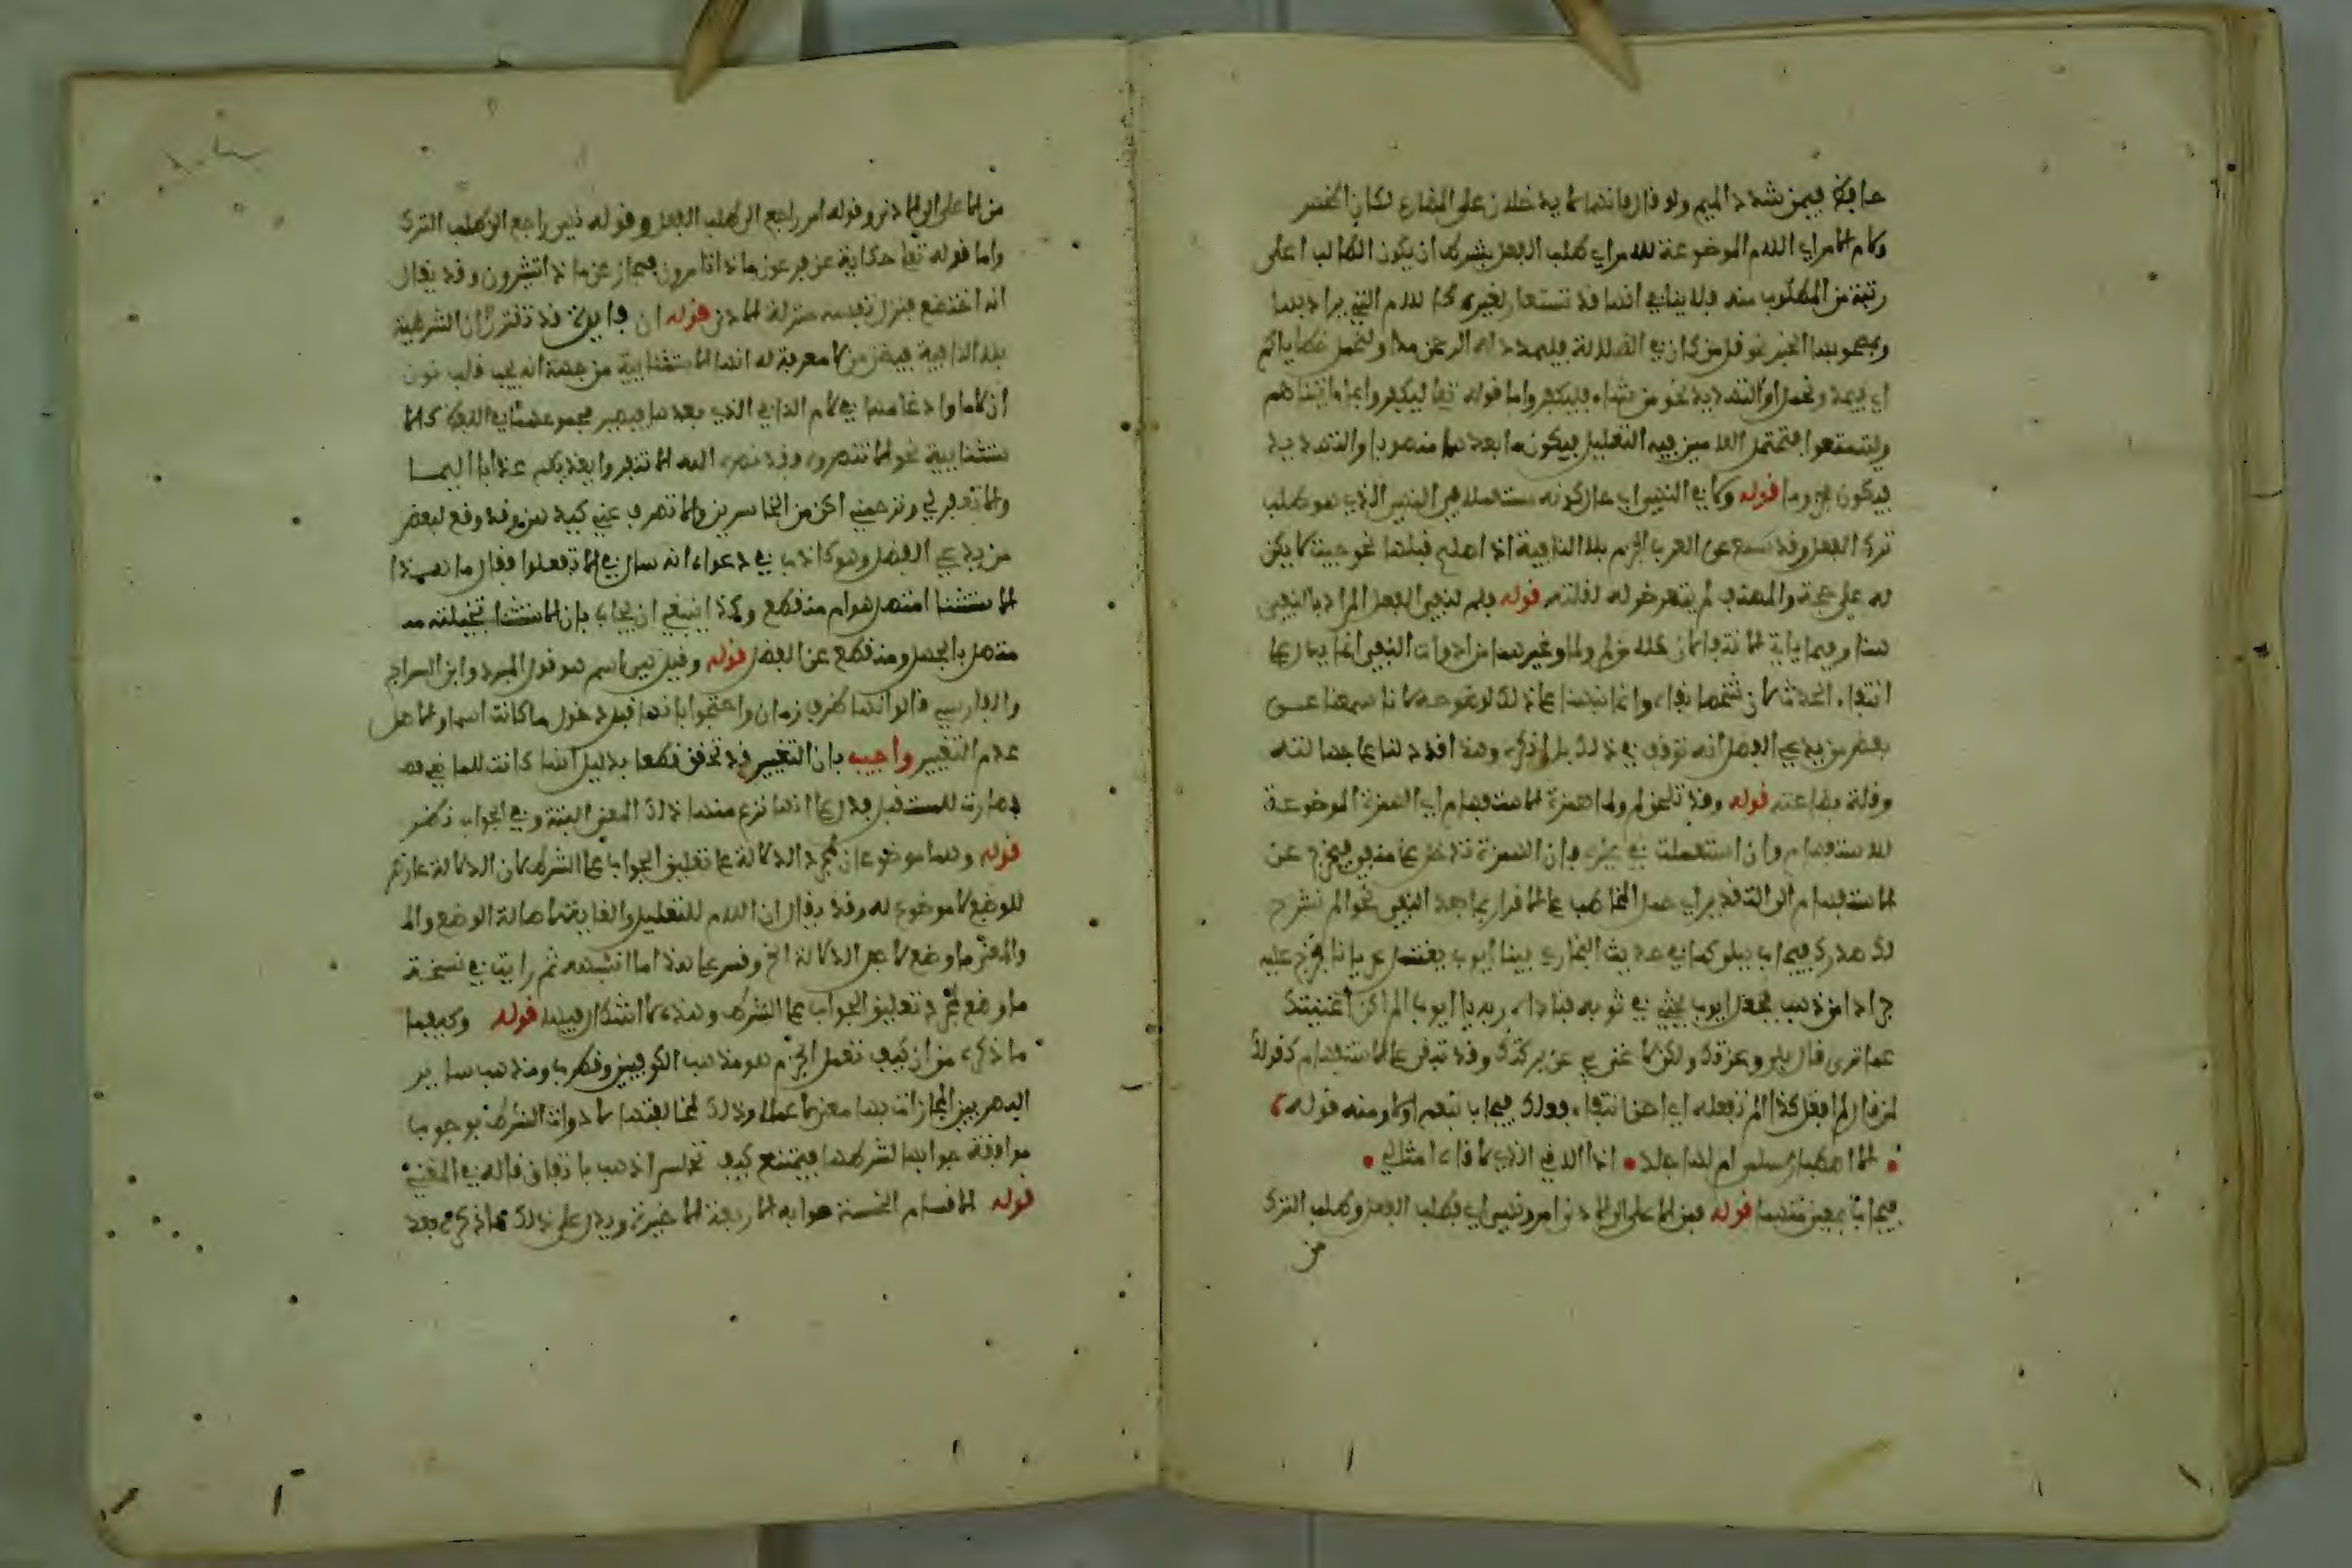 حافظ فيمن شدد الميم ولو قال فانهما لا يدخلان على المضارع لكان اخصر
ولام الامر اي اللام الموضوعة للامر اي طلب الفعل بشرط ان يكون الطالب اعلى
رتبة من المطلوب منه فلا ينافي انها قد تستعار لغيره كاللام التي يراد بها
وبمصحوبها الخبر نحو قل من كان في الضلالة فليمدد له الرحمن مدا ولنحمل خطاياكم
اي فيمد ونحمل او التهديد نحو من شاء فليكفر واما قوله تعا ليكفروا بما اتيناهم
وليتمتعوا فتحتمل اللامين فيه التعليل فيكون ما بعدهما منصوبا والتهديد
فيكون مجزوما قوله ولا في النهي اي حال كونه مستعملة في النهي الذي هو طلب
ترك الفعل وقد سمع عن العرب الجزم بلا النافية اذا صلح قبلها نحو جئت لا يكن
له علي حجة والمصنف لم يتعرض له لقلته قوله فلم لنفي الفعل المراد بالنفي
هنا وفيما ياتي الانتفا لان
انتفاء الحدث لا ان شخصا نفاه وانما نبهنا على ذلك لوضوحه لانا سمعنا عن
بعض من يدعي الفضل انه توقف في ذلك بل انكره وهذا اقوى دلنا على جهالته
وقلة بضاعته قوله وقد تلحق لم ولما همزة الاستفهام اي الهمزة الموضوعة
للاستفهام وان استعملت في غيره فان الهمزة تدخل على منفي فيخرج عن
الاستفهام الى التقدير اي حمل المخاطب على الاقرار بما بعد النفي نحو الم نشرح
لك صدرك فيجاب ببلى كما في حديث البخاري بينا ايوب يغتسل عريانا فخر عليه
جراد من ذهب فجعل ايوب يحثي في ثوبه فناداه ربه يا ايوب الم اكن اغنيتك
عما ترى قال بلى وعزتك ولكن لا غنى بي عن بركتك وقد تبقى على الاستفهام كقولك
لمن قال لم افعل كذا الم تفعله اي احق انتفاء فعلك فيجاب بنعم او لا ومنه قوله
الا اصطبار لسلمى ام لها جلد اذا الاقي الذي لاقاه امثالي
فيجاب بمعنى منهما قوله فمن الاعلى الى الادنى امر ونهي اي فطلب الفعل وطلب الترك
من
من الاعلى الى الادنى وقوله امر راجع الى طلب الفعل وقوله نهي راجع الى طلب الترك
واما قوله تعا حكاية عن فرعون ماذا تامرون فمجاز عن ماذا تشيرون وقد يقال
انه اختضع فنزل نفسه منزلة الادنى قوله ان فايدة قد تقترن ان الشرطية
بلا النافية فيظن من لا معرفة له انها الاستثنايية من جهة انه يجب قلب نون
ان لاما وادغامها في لام النافي الذي بعدها فيصير مجموعهما في اللفظ كالا
ستثنايية نحو الا تنصروه فقد نصره الله الا تنفروا يعذبكم عذابا اليما
والا تغفر لي وترحمني اكن من الخاسرين والا تصرف عني كيدهن وقد وقع لبعض
من يدعي الفضل وهو كاذب في دعواه انه سال في الا تفعلوا فقال ما هذا
الاستثنا امتصل هو ام منقطع وكذا ينبغي ان يجاب بان الاستثنا تخيلته
متصل بالجهل ومنقطع عن الفضل قوله وقيل هي اسم هو قول المبرد وابن السراج
والفارسي قالوا انها ظرف زمان واحتجوا بانها قبل دخول ما كانت اسما والاصل
عدم التغيير واجيب بان التغيير قد تحقق قطعا بدليل انها كانت للماضي
فصارت للمستقبل فدل على انها نزع منها ذلك المعنى البتة وفي الجواب نظر
قوله وهما موضوعان لمجرد الدلالة على تعليق الجواب على الشرط لان الدلالة
للوضع لا موضوع له وقد يقال ان اللام للتعليل والغاية اصالة الوضع والا
والمعنى ما وضع لاجل الدلالة الخ وفسر على هذا ما اشبهه ثم رايت في نسخة
ما وضع لمجرد تعليق الجواب على الشرط وهذه لا اشكال فيها قوله وكيفما
ما ذكره من ان كيف تعمل الجزم هو مذهب الكوفيين وقطرب ومذهب ساير
البصريين المجازات بها معنى لا عملا وذلك لمخالفتها لادوات الشرط بوجوب
موافقة جوابها لشرطها فيمتنع كيف تجلس اذهب باتفاق قاله في المغني
قوله الاقسام الخمسة صوابه الاربعة الاخيرة ويدل على ذلك ما ذكره بعد